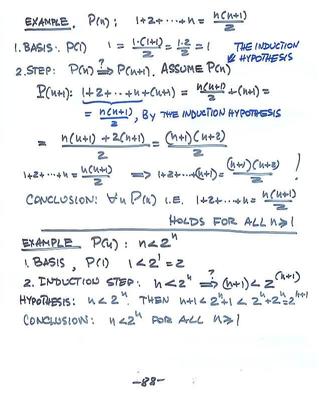 EXAMPLE. P(n): 1+2+···+n = n(n+1)/2
1. BASIS. P(1) 1 = 1·(1+1)/2 = 1·2/2 = 1 THE INDUCTION HYPOTHESIS
2. STEP: P(n) ?⇒ P(n+1). ASSUME P(n)
P(n+1): 1+2+···+n+(n+1) = n(n+1)/2 + (n+1) =
= n(n+1)/2, BY THE INDUCTION HYPOTHESIS
= n(n+1)+2(n+1)/2 = (n+1)(n+2)/2
1+2+···+n = n(n+1)/2 ⇒ 1+2+···+(n+1) = (n+1)(n+2)/2 !
CONCLUSION: ∀n P(n) I.E. 1+2+···+n = n(n+1)/2
HOLDS FOR ALL n≥1
EXAMPLE P(n): n<2^n
1. BASIS, P(1) 1<2^1=2
2. INDUCTION STEP: n<2^n ?⇒ (n+1)<2^(n+1)
HYPOTHESIS: n<2^n. THEN n+1<2^n+1<2^n+2^n=2^n+1
CONCLUSION: n<2^n FOR ALL n≥1
-88-